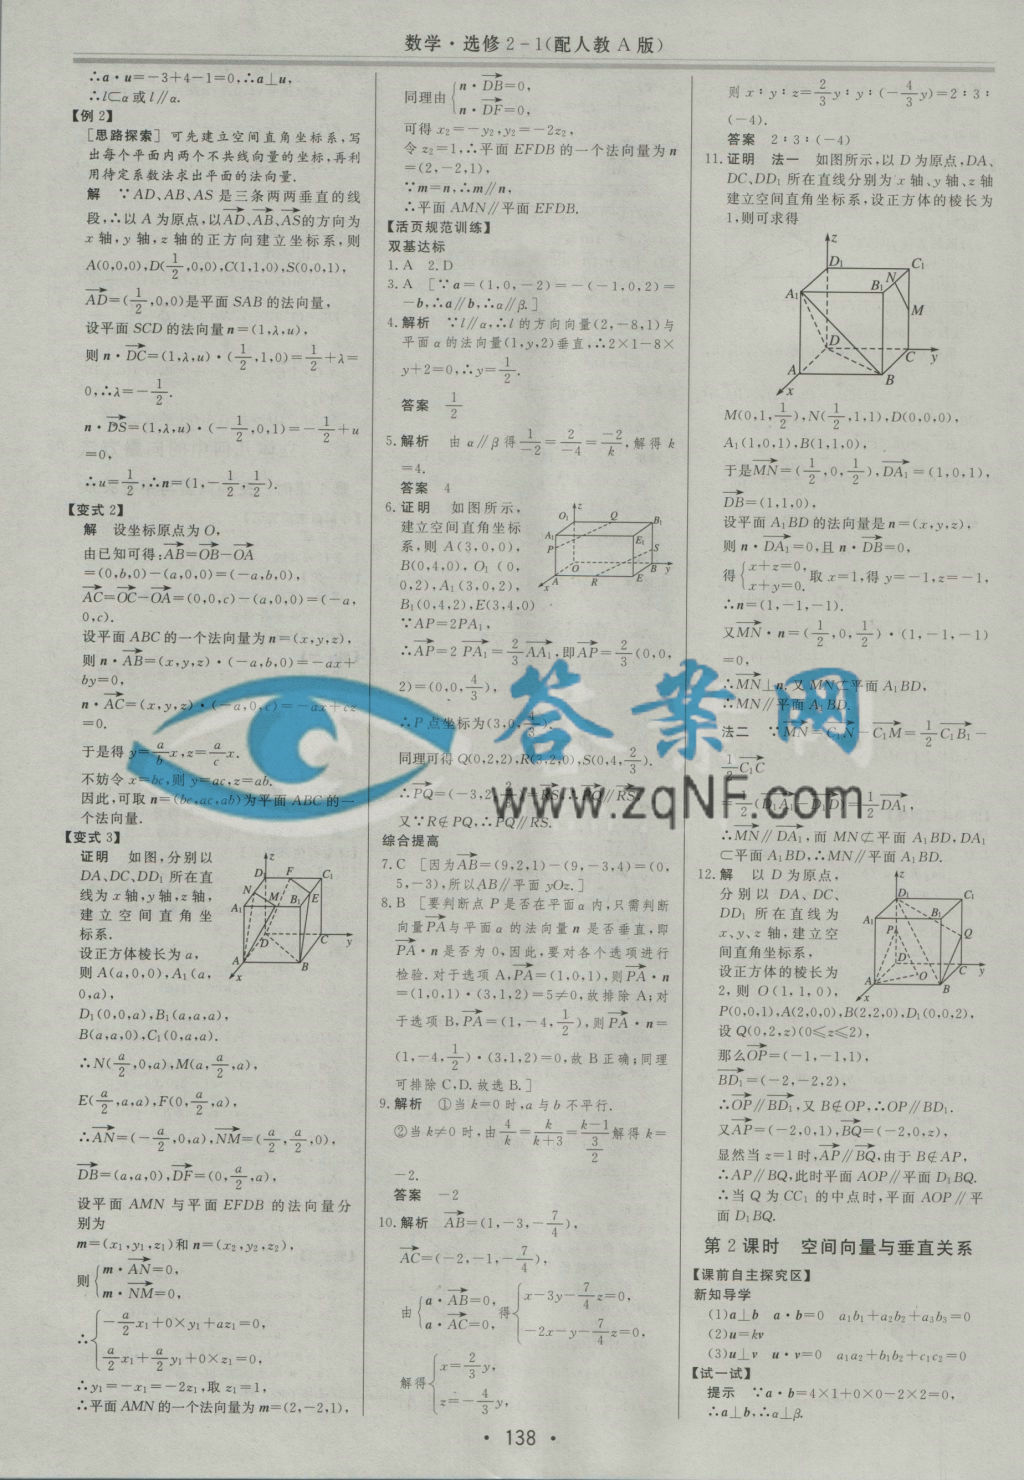 数学·选修2-1(配人教A版)
∴a·u=-3+4-1=0,∴a⊥u,
∴l⊂α或l∥α.
【例2】
[思路探索] 可先建立空间直角坐标系,写
出每个平面内两个不共线向量的坐标,再利
用待定系数法求出平面的法向量.
解 ∵AD、AB、AS是三条两两垂直的线
段,∴以A为原点,以AD、AB、AS的方向为
x轴,y轴,z轴的正方向建立坐标系,则
A(0,0,0),D(1/2,0,0),C(1,1,0),S(0,0,1),
AD=(1/2,0,0)是平面SAB的法向量,
设平面SCD的法向量n=(1,λ,u),
则n·DC=(1,λ,u)·(1/2,1,0)=1/2+λ=
0,∴λ=-1/2.
n·DS=(1,λ,u)·(-1/2,0,1)=-1/2+u
=0,
∴u=1/2,∴n=(1,-1/2,1/2).
【变式2】
解 设坐标原点为O,
由已知可得:AB=OB-OA
=(0,b,0)-(a,0,0)=(-a,b,0),
AC=OC-OA=(0,0,c)-(a,0,0)=(-a,
0,c).
设平面ABC的一个法向量为n=(x,y,z),
则n·AB=(x,y,z)·(-a,b,0)=-ax+
by=0,
n·AC=(x,y,z)·(-a,0,c)=-ax+cz
=0.
于是得y=a/b x,z=a/c x.
不妨令x=bc,则y=ac,z=ab.
因此,可取n=(bc,ac,ab)为平面ABC的一
个法向量.
【变式3】
证明 如图,分别以
DA、DC、DD₁所在直
线为x轴,y轴,z轴,
建立空间直角坐
标系.
设正方体棱长为a,
则A(a,0,0),A₁(a,
0,a),
D₁(0,0,a),B₁(a,a,a),
B(a,a,0),C₁(0,a,a).
∴N(a/2,0,a),M(a,a/2,a),
E(a/2,a,a),F(0,a/2,a),
∴AN=(-a/2,0,a),NM=(a/2,a/2,0),
DB=(a,a,0),DF=(0,a/2,a),
设平面AMN与平面EFDB的法向量分
别为
m=(x₁,y₁,z₁)和n=(x₂,y₂,z₂),
则{m·AN=0,
m·NM=0,
∴{-a/2 x₁+0×y₁+az₁=0,
a/2 x₁+a/2 y₁+0×z₁=0,
∴y₁=-x₁=-2z₁,取z₁=1,
∴平面AMN的一个法向量为m=(2,-2,1),
同理由{n·DB=0,
n·DF=0,
可得x₂=-y₂,y₂=-2z₂,
令z₂=1,∴平面EFDB的一个法向量为n
=(2,-2,1),
∵m=n,∴m∥n,
∴平面AMN∥平面EFDB.
【活页规范训练】
双基达标
1.A 2.D
3.A [∵a=(1,0,-2)=-(-1,0,2)=
-b,∴a∥b,∴α∥β.]
4.解析 ∵l∥α,∴l的方向向量(2,-8,1)与
平面α的法向量(1,y,2)垂直,∴2×1-8×
y+2=0,∴y=1/2.
答案 1/2
5.解析 由α∥β得1/-2=2/-4=-2/k,解得k
=4.
答案 4
6.证明 如图所示,
建立空间直角坐标
系,则A(3,0,0),
B(0,4,0),O₁(0,
0,2),A₁(3,0,2),
B₁(0,4,2),E(3,4,0)
∵AP=2PA₁,
∴AP=2 PA₁=2/3 AA₁,即AP=2/3(0,0,
2)=(0,0,4/3),
∴P点坐标为(3,0,4/3).
同理可得Q(0,2,2),R(3,2,0),S(0,4,2/3).
∴PQ=(-3,2,2/3)=RS,∴PQ∥RS,
又∵R∉PQ,∴PQ∥RS.
综合提高
7.C [因为AB=(9,2,1)-(9,-3,4)=(0,
5,-3),所以AB∥平面yOz.]
8.B [要判断点P是否在平面α内,只需判断
向量PA与平面α的法向量n是否垂直,即
PA·n是否为0,因此,要对各个选项进行
检验.对于选项A,PA=(1,0,1),则PA·n
=(1,0,1)·(3,1,2)=5≠0,故排除A;对
于选项B,PA=(1,-4,1/2),则PA·n=
(1,-4,1/2)·(3,1,2)=0,故B正确;同理
可排除C、D.故选B.]
9.解析 ①当k=0时,a与b不平行.
②当k≠0时,由4/k=k/k+3=k-1/(3/2)解得k=
-2.
答案 -2
10.解析 AB=(1,-3,-7/4),
AC=(-2,-1,-7/4),
由{a·AB=0,
a·AC=0,
得{x-3y-7/4 z=0,
-2x-y-7/4 z=0,
解得{x=2/3 y,
z=-4/3 y,
则x∶y∶z=2/3 y∶y∶(-4/3 y)=2∶3∶
(-4).
答案 2∶3∶(-4)
11.证明 法一 如图所示,以D为原点,DA、
DC、DD₁所在直线分别为x轴、y轴、z轴
建立空间直角坐标系,设正方体的棱长为
1,则可求得
M(0,1,1/2),N(1/2,1,1),D(0,0,0),
A₁(1,0,1),B(1,1,0),
于是MN=(1/2,0,1/2),DA₁=(1,0,1),
DB=(1,1,0),
设平面A₁BD的法向量是n=(x,y,z),
则n·DA₁=0,且n·DB=0,
得{x+z=0,
x+y=0.
取x=1,得y=-1,z=-1,
∴n=(1,-1,-1).
又MN·n=(1/2,0,1/2)·(1,-1,-1)
=0,
∴MN⊥n.又MN⊄平面A₁BD,
∴MN∥平面A₁BD.
法二 ∵MN=C₁N-C₁M=1/2 C₁B₁-
1/2 C₁C
=1/2(D₁A₁-D₁D)=1/2 DA₁,
∴MN∥DA₁,而MN⊄平面A₁BD,DA₁
⊂平面A₁BD,∴MN∥平面A₁BD.
12.解 以D为原点,
分别以DA、DC、
DD₁所在直线为
x、y、z轴,建立空
间直角坐标系,
设正方体的棱长为
2,则O(1,1,0),
P(0,0,1),A(2,0,0),B(2,2,0),D₁(0,0,2),
设Q(0,2,z)(0≤z≤2),
那么OP=(-1,-1,1),
BD₁=(-2,-2,2),
∴OP∥BD₁,又B∉OP,∴OP∥BD₁.
又AP=(-2,0,1),BQ=(-2,0,z),
显然当z=1时,AP∥BQ,由于B∉AP,
∴AP∥BQ,此时平面AOP∥平面D₁BQ.
∴当Q为CC₁的中点时,平面AOP∥平
面D₁BQ.
第2课时 空间向量与垂直关系
【课前自主探究区】
新知导学
(1)a⊥b a·b=0 a₁b₁+a₂b₂+a₃b₃=0
(2)u=kv
(3)u⊥v u·v=0 a₁a₂+b₁b₂+c₁c₂=0
【试一试】
提示 ∵a·b=4×1+0×0-2×2=0,
∴a⊥b,∴α⊥β.
·138·
答案网
www.zqNF.com